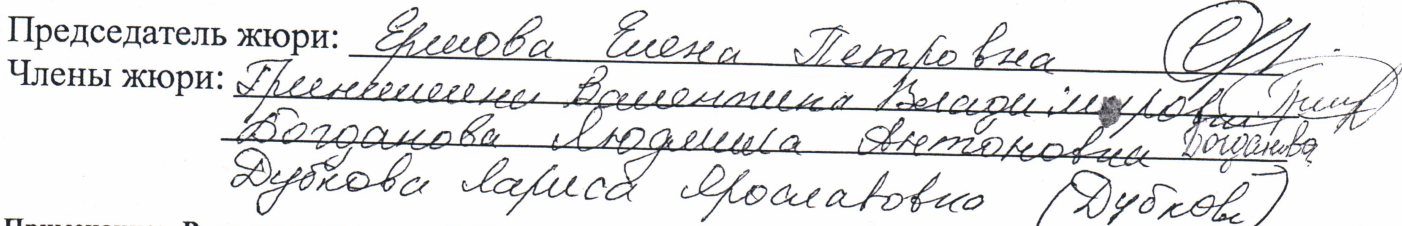 Председатель жюри: Ермова Елена Петровна
Члены жюри: Валентина Владимировна
Богданова Людмила Антоновна Богданова
Дубкова Лариса Ярославовна (Дубкова)